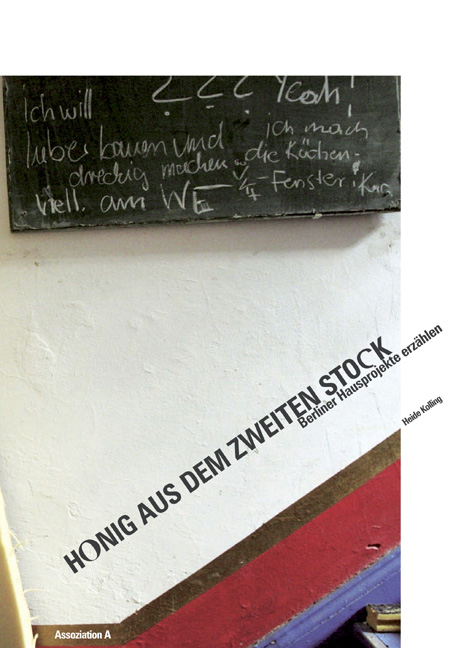 ??? Yeah!
Ich will
lieber bauen und ich mach
dreckig machen die Küchen-
viell. am WE Fenster!
HONIG AUS DEM ZWEITEN STOCK
Berliner Hausprojekte erzählen
Heide Kolling
Assoziation A